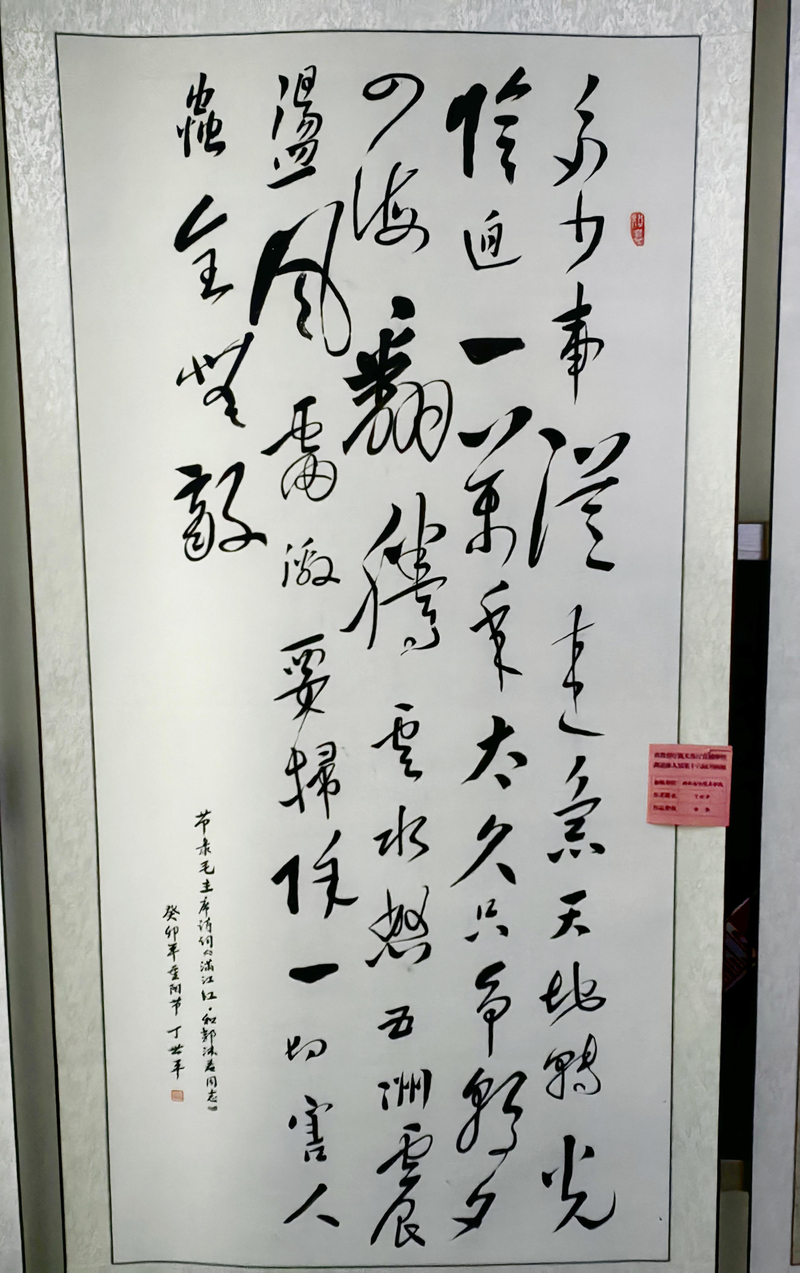 多少事從来急天地轉光
陰迫一萬年太久只争朝夕
四海翻騰雲水怒五洲震
盪風雷激要掃除一切害人
蟲全無敵
节录毛主席诗词《满江红·和郭沫若同志》
癸卯年重阳节 丁世平